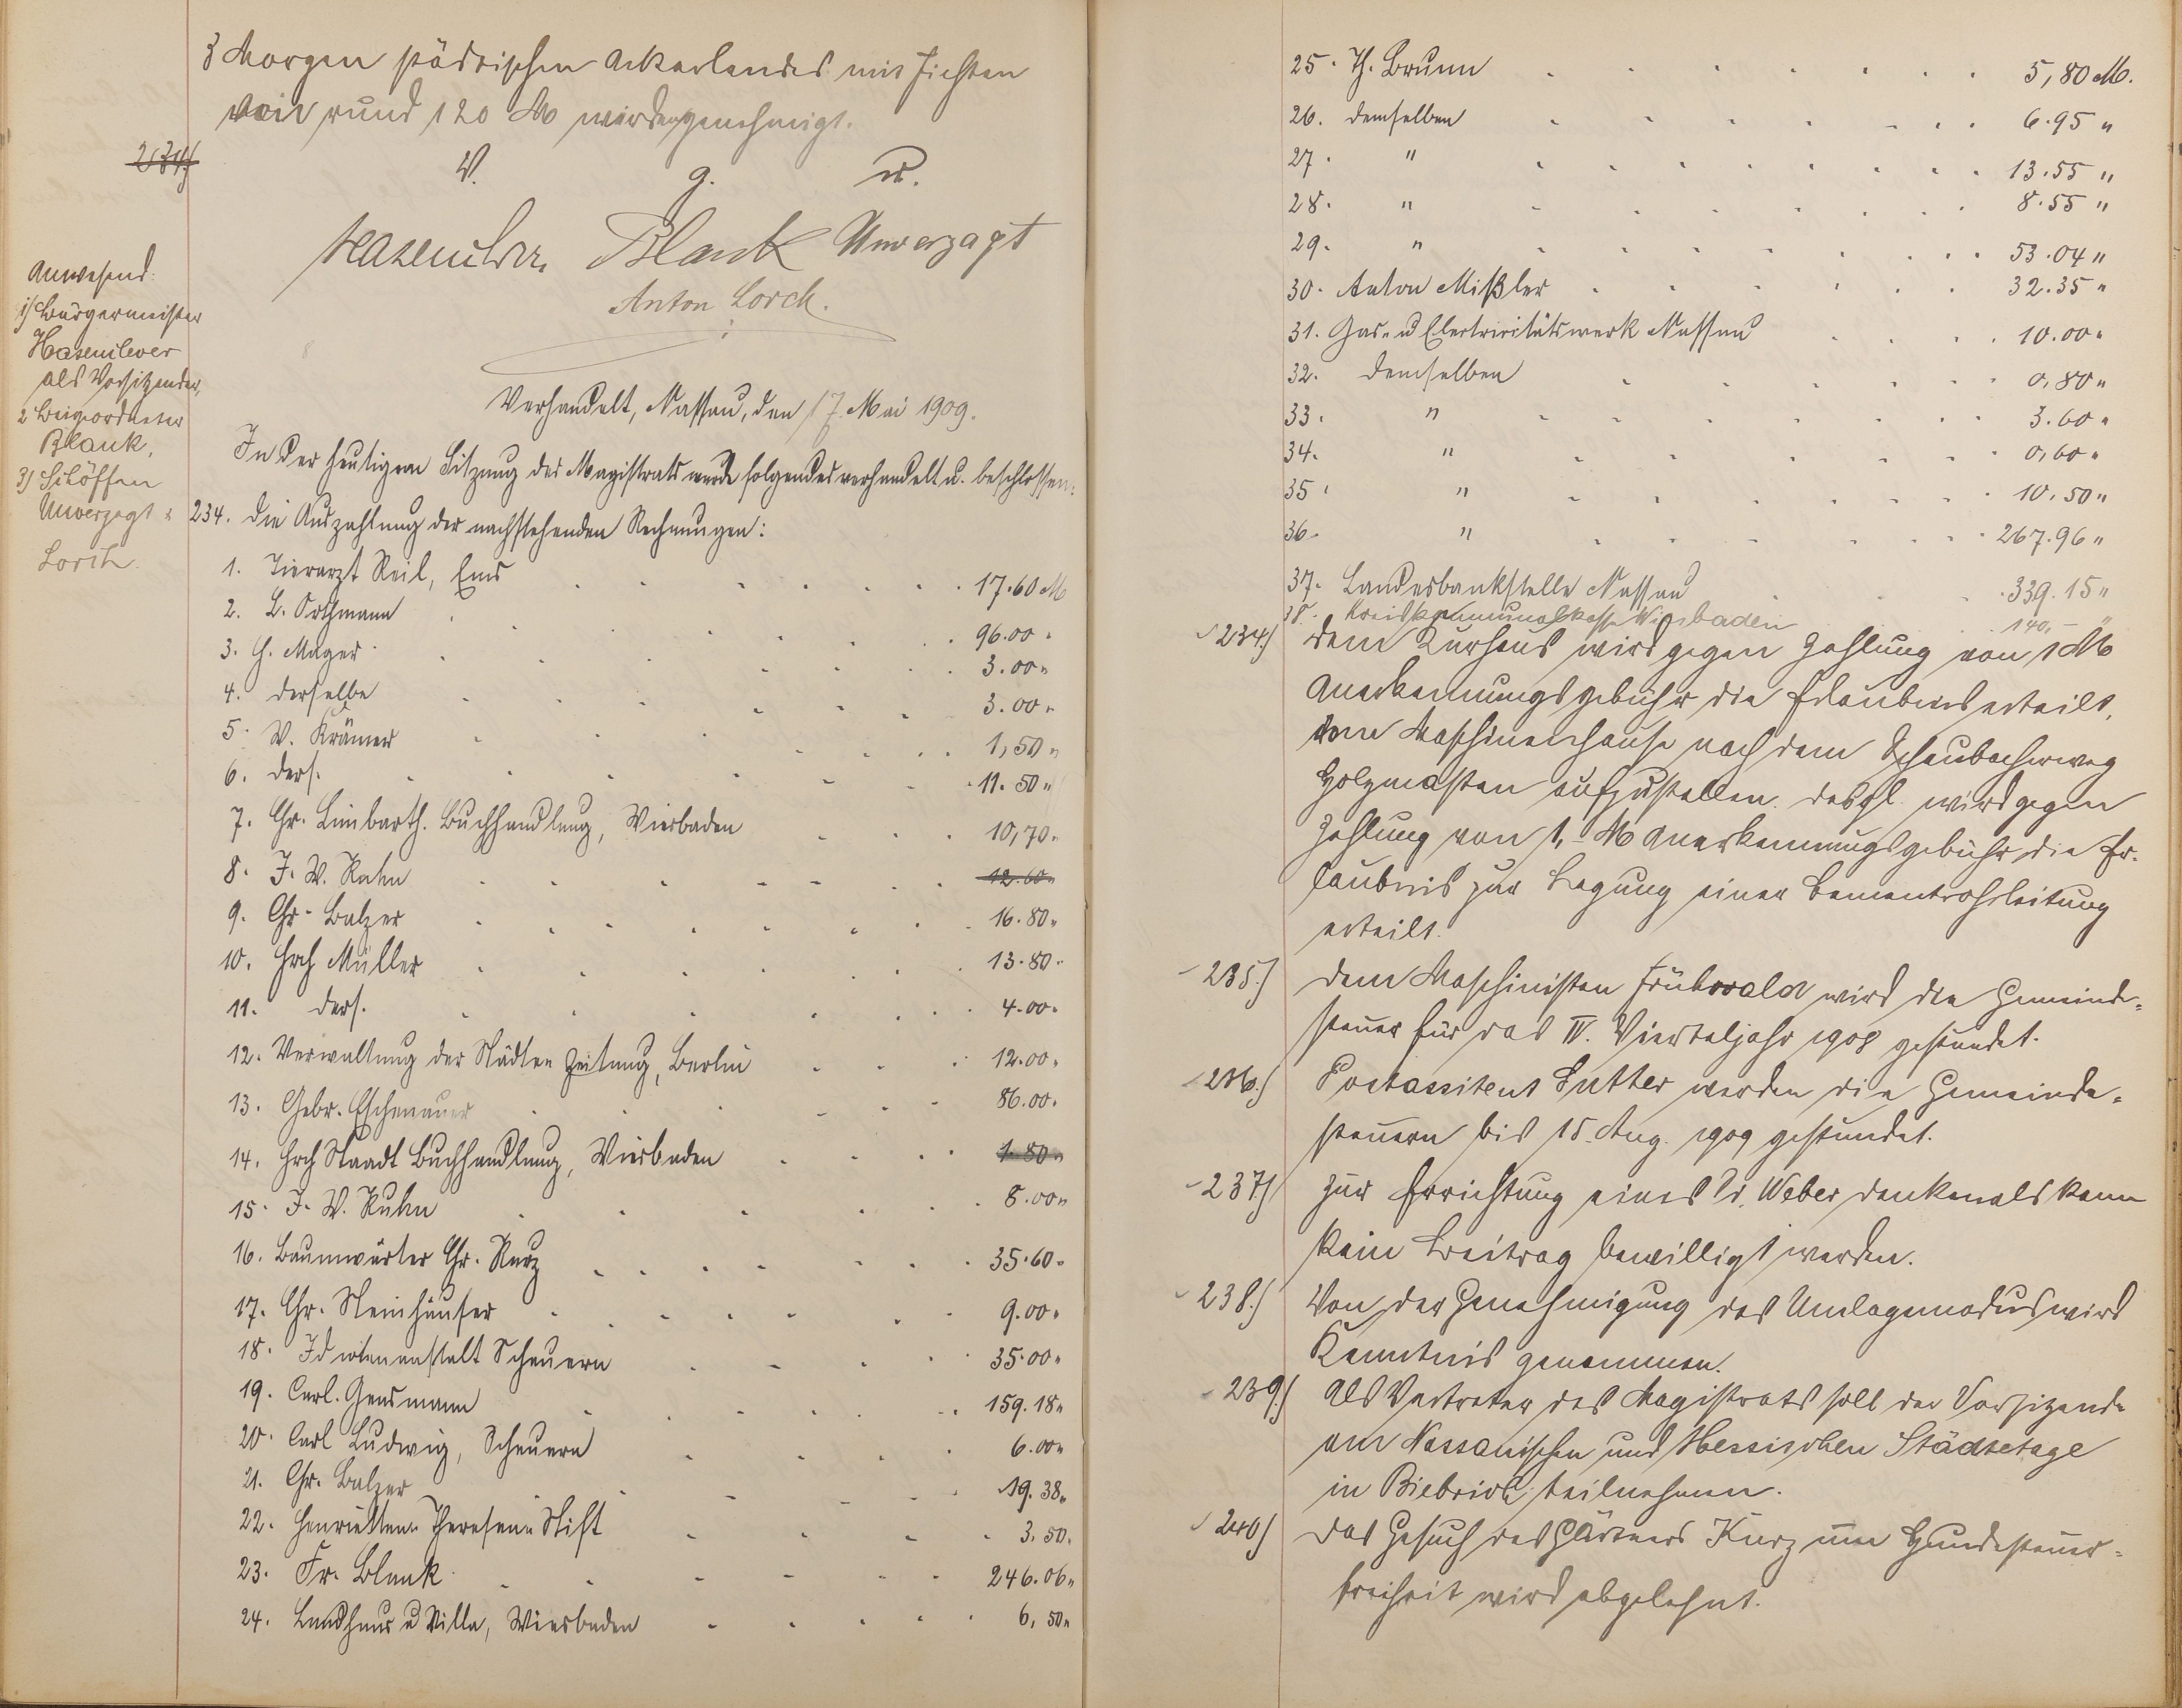 3 Morgen städtischen Ackerlandes mit Fichten
mit rund 120 M werden genehmigt.
234)
V. g. u.
Hasenclever. Blank Unverzagt
Anton Lorch.
Anwesend:
1) Bürgermeister
Hasenclever
als Vorsitzender,
2 Beigeordneter
Blank,
3) Schöffen
Unverzagt &
Lorch.
Verhandelt, Nassau, den 17. Mai 1909.
In der heutigen Sitzung des Magistrats wurde folgendes verhandelt u. beschlossen:
234. Die Auszahlung der nachstehenden Rechnungen:
1. Tierarzt Reil, Ems 17.60 M
2. L. Orthmann 96.00 "
3. H. Mager 3.00 "
4. derselbe 3.00 "
5. W. Krämer 1,50 "
6. ders. 11.50 "
7. Chr. Limbarth. Buchhandlung, Wiesbaden 10,70 "
8. J. W. Kuhn 12.60 "
9. Chr. Balzer 16.80 "
10. Hrch Müller 13.80 "
11. ders. 4.00 "
12. Verwaltung der Städte Zeitung, Berlin 12.00 "
13. Gebr. Eschenauer 86.00 "
14. Hrch Staadt Buchhandlung, Wiesbaden 1.80 "
15. J. W. Kuhn 8.00 "
16. Baumwärter Chr. Kurz 35.60 "
17. Chr. Steinhäuser 9.00 "
18. Idiotenanstalt Scheuern 35.00 "
19. Carl. Gensmann 159.18 "
20. Carl Ludwig, Scheuern 6.00 "
21. Chr. Balzer 19.38 "
22. Henrietten-Theresen-Stift 3.50 "
23. Fr. Blank 246.06 "
24. Landhaus u Villa, Wiesbaden 6,50 "
25. Th. Brunn 5,80 M.
26. demselben 6.95 "
27. " 13.55 "
28. " 8.55 "
29. " 53.04 "
30. Anton Mißler 32.35 "
31. Gas- u Electricitätswerk Nassau 10.00 "
32. demselben 0,80 "
33. " 3.60 "
34. " 0,60 "
35. " 10.50 "
36. " 267.96 "
37. Landesbankstelle Nassau 339.15 "
38. Kreiskommunalkasse Wiesbaden 140,- "
234) Dem Kurhaus wird gegen Zahlung von 1 M
Anerkennungsgebühr die Erlaubnis erteilt,
vom Maschinenhause nach dem Schaubacherweg
Holzmasten aufzustellen. desgl. wird gegen
Zahlung von 1,- M Anerkennungsgebühr die Er-
laubnis zur Legung einer Cementrohrleitung
erteilt.
235.) Dem Maschinisten Frühwald wird die Gemeinde-
steuer für das IV. Vierteljahr 1908 gestundet.
236.) Postassitent Sutter werden die Gemeinde-
steuern bis 15. Aug. 1909 gestundet.
237) Zur Errichtung eines Dr. Weber denkmals kann
kein Beitrag bewilligt werden.
238.) Von der Genehmigung des Umlagemodus wird
Kenntnis genommen.
239.) Als Vertreter des Magistrats soll der Vorsizende
am Nassauischen und Hessischen Städtetage
in Biebrich teilnehmen.
240) Das Gesuch des Gärtners Kurz um Hundesteuer-
freiheit wird abgelehnt.